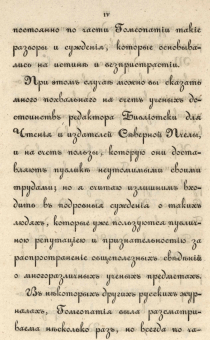 IV
постоянно по части Гомеопатіи такіе
разборы и сужденія, которые основыва-
лись на истинѣ и безпристрастіи.
При этомъ случаѣ можно бы сказать
много похвальнаго на счетъ ученыхъ до-
стоинствъ редактора Библіотеки для
Чтенія и издателей Сѣверной Пчелы,
и на счетъ пользы, которую они доста-
вляютъ публикѣ неутомимыми своими
трудами; но я считаю излишнимъ вхо-
дить въ подробныя сужденія о такихъ
людяхъ, которые уже пользуются публич-
ною репутаціею и признательностію за
распространеніе общеполезныхъ свѣдѣній
о многоразличныхъ ученыхъ предметахъ.
Въ нѣкоторыхъ другихъ русскихъ жур-
налахъ, Гомеопатія была разсматри-
ваема нѣсколько разъ, но всегда по ча-